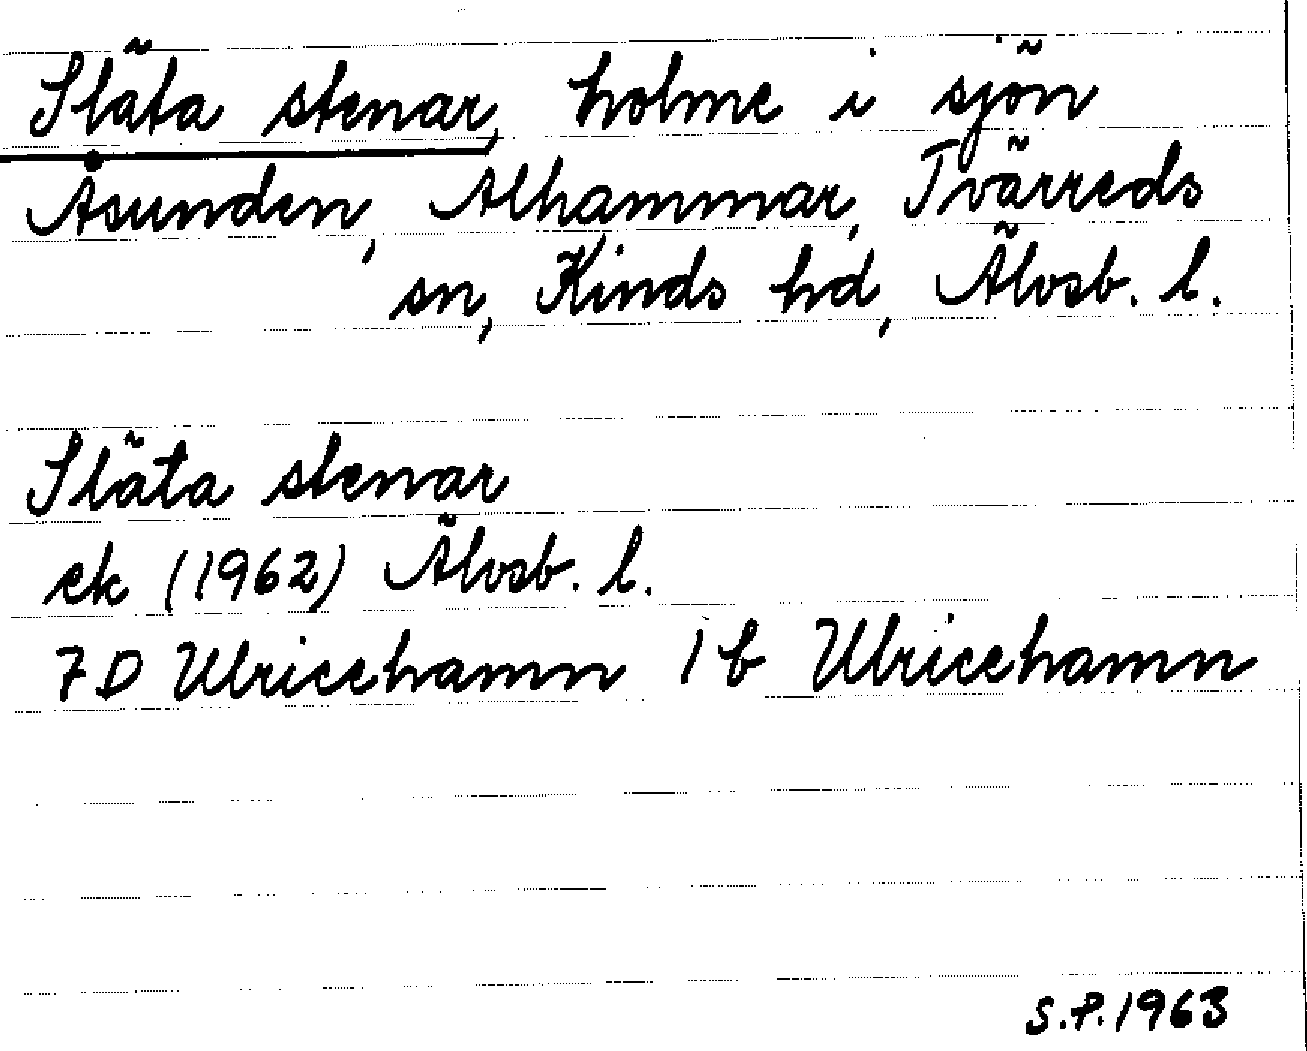 Släta stenar, holme i sjön
Åsunden, Alhammar, Tvärreds
sn, Kinds hd, Älvsb. l.
Släta stenar
ek (1962) Älvsb. l.
7D Ulricehamn 1 b Ulricehamn
S.P. 1963